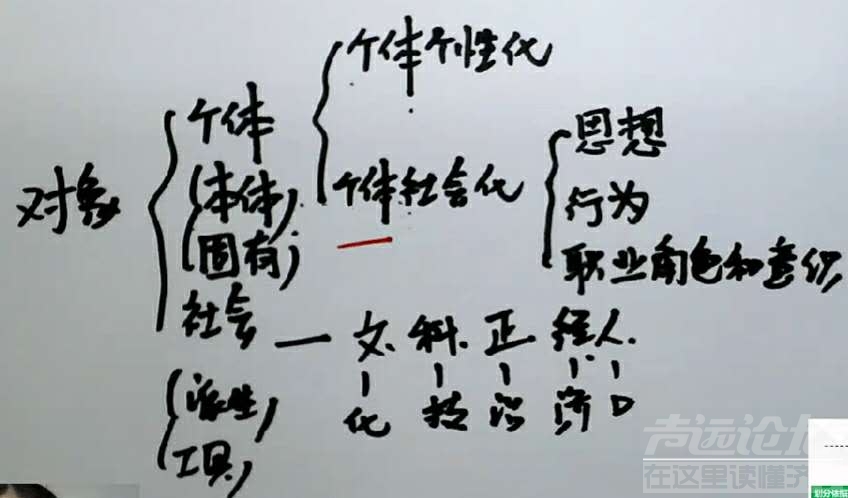 对象
个体
(本体)
(固有)
社会
(派生)
(工具)
个体个性化
个体社会化
思想
行为
职业角色和意识
— 文. 科. 正. 经人.
化 技 治 济口
声远论坛
在这里读懂
划分依据